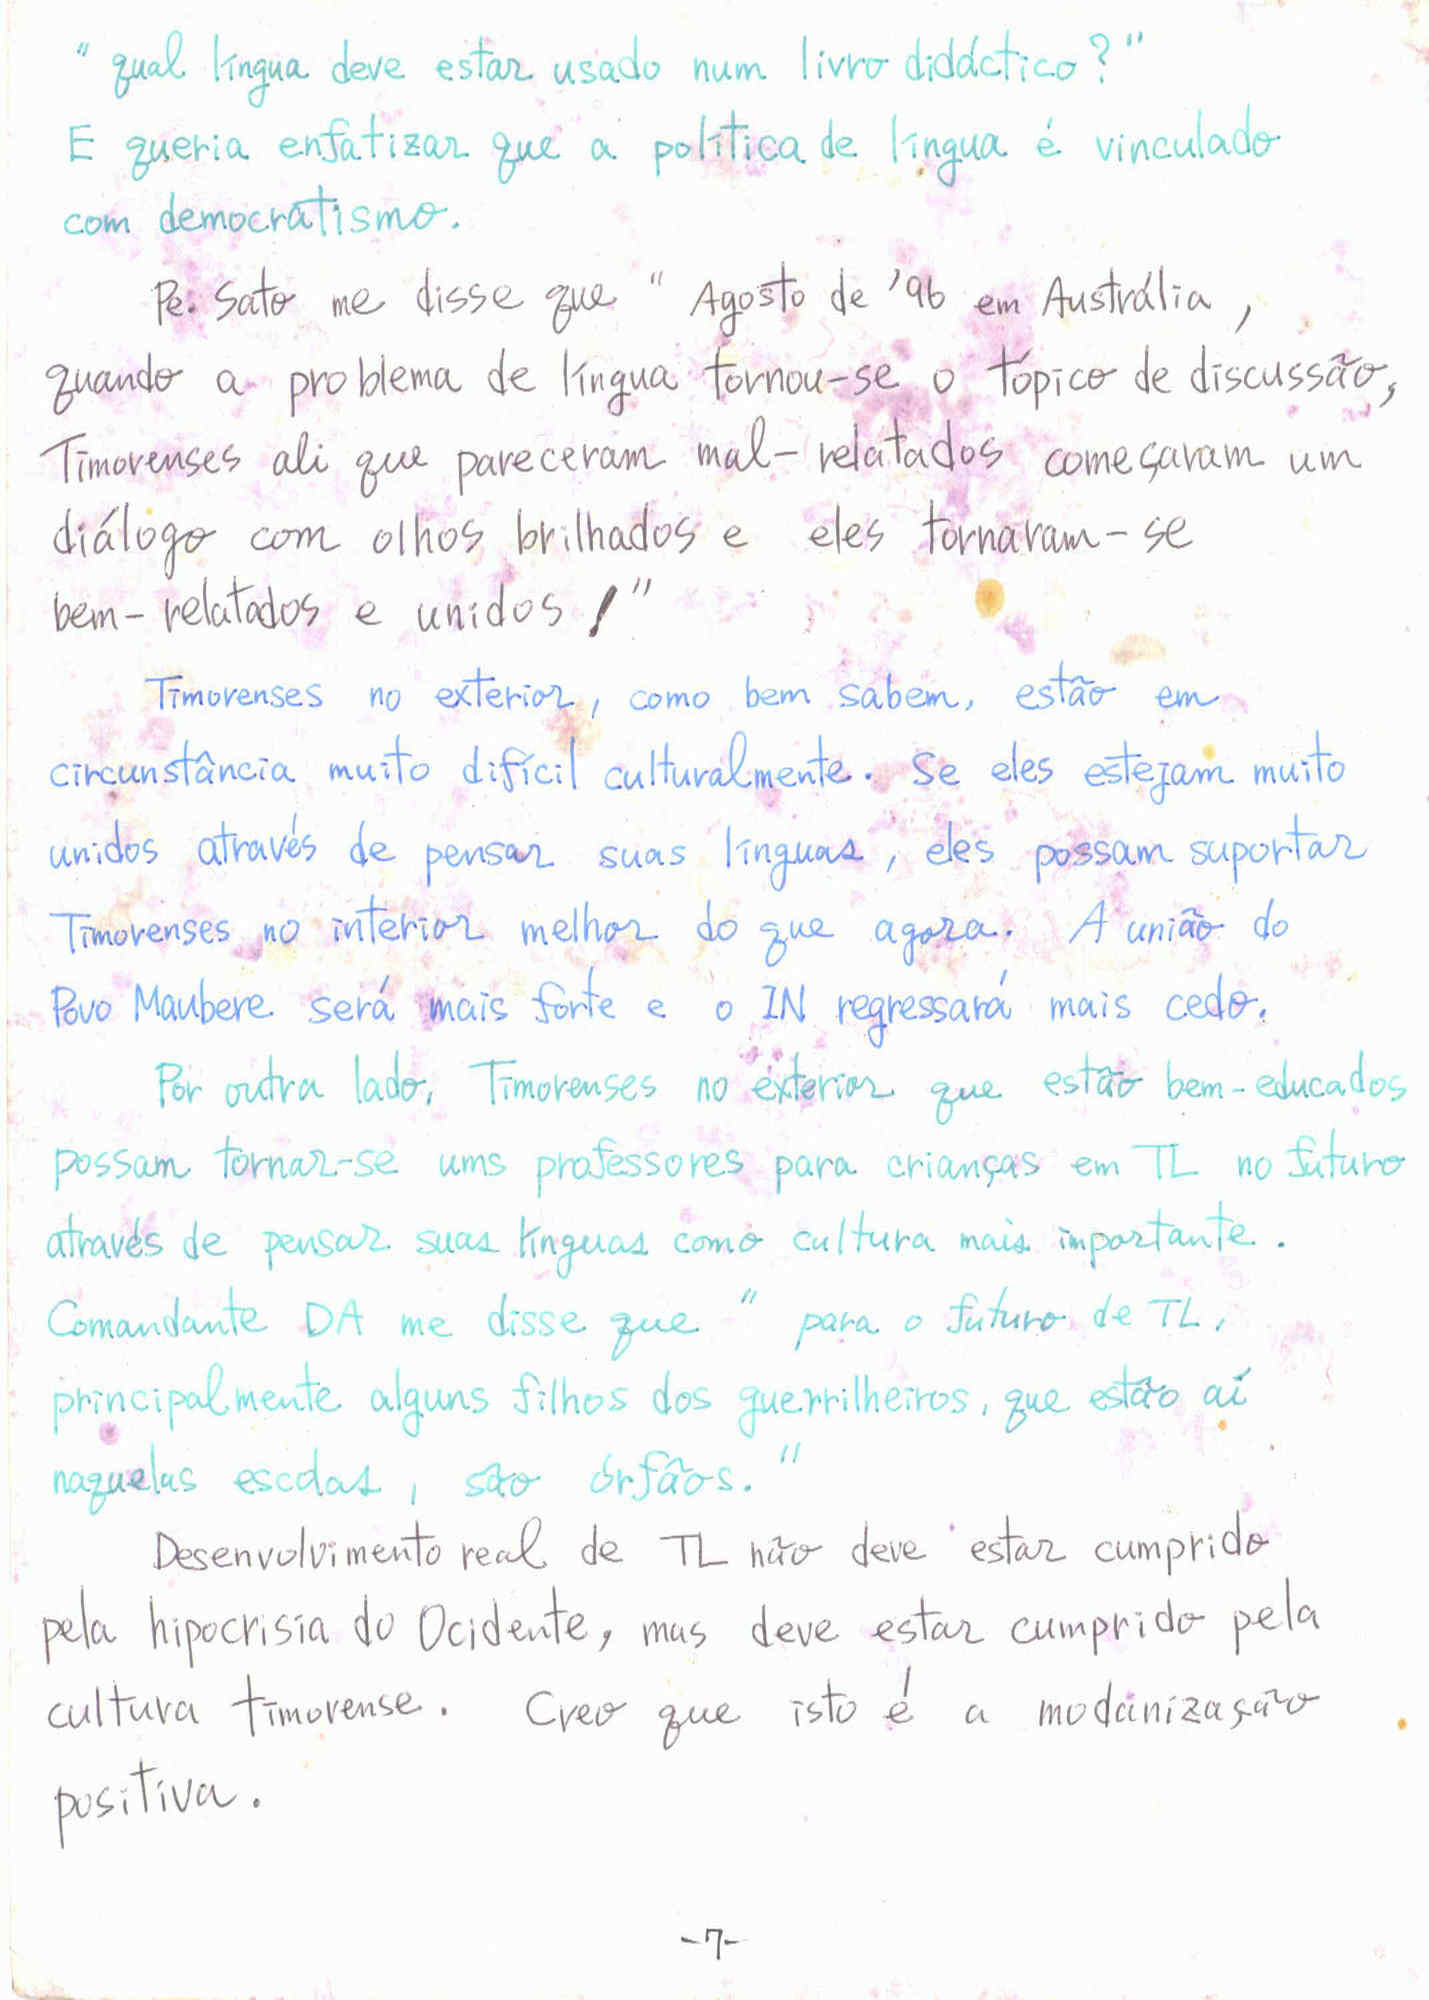 "qual língua deve estar usado num livro didáctico?"
E queria enfatizar que a política de língua é vinculado
com democratismo.
Pe. Sato me disse que "Agosto de '96 em Austrália,
quando a problema de língua tornou-se o tópico de discussão,
Timorenses ali que pareceram mal-relatados começaram um
diálogo com olhos brilhados e eles tornaram-se
bem-relatados e unidos!"
Timorenses no exterior, como bem sabem, estão em
circunstância muito difícil culturalmente. Se eles estejam muito
unidos através de pensar suas línguas, eles possam suportar
Timorenses no interior melhor do que agora. A união do
Povo Maubere será mais forte e o IN regressará mais cedo.
Por outra lado, Timorenses no exterior que estão bem-educados
possam tornar-se ums professores para crianças em TL no futuro
através de pensar suas línguas como cultura mais importante.
Comandante DA me disse que "para o futuro de TL,
principalmente alguns filhos dos guerrilheiros, que estão aí
naquelas escolas, são órfãos."
Desenvolvimento real de TL não deve estar cumprido
pela hipocrisia do Ocidente, mas deve estar cumprido pela
cultura timorense. Creo que isto é a modanização
positiva.
-7-